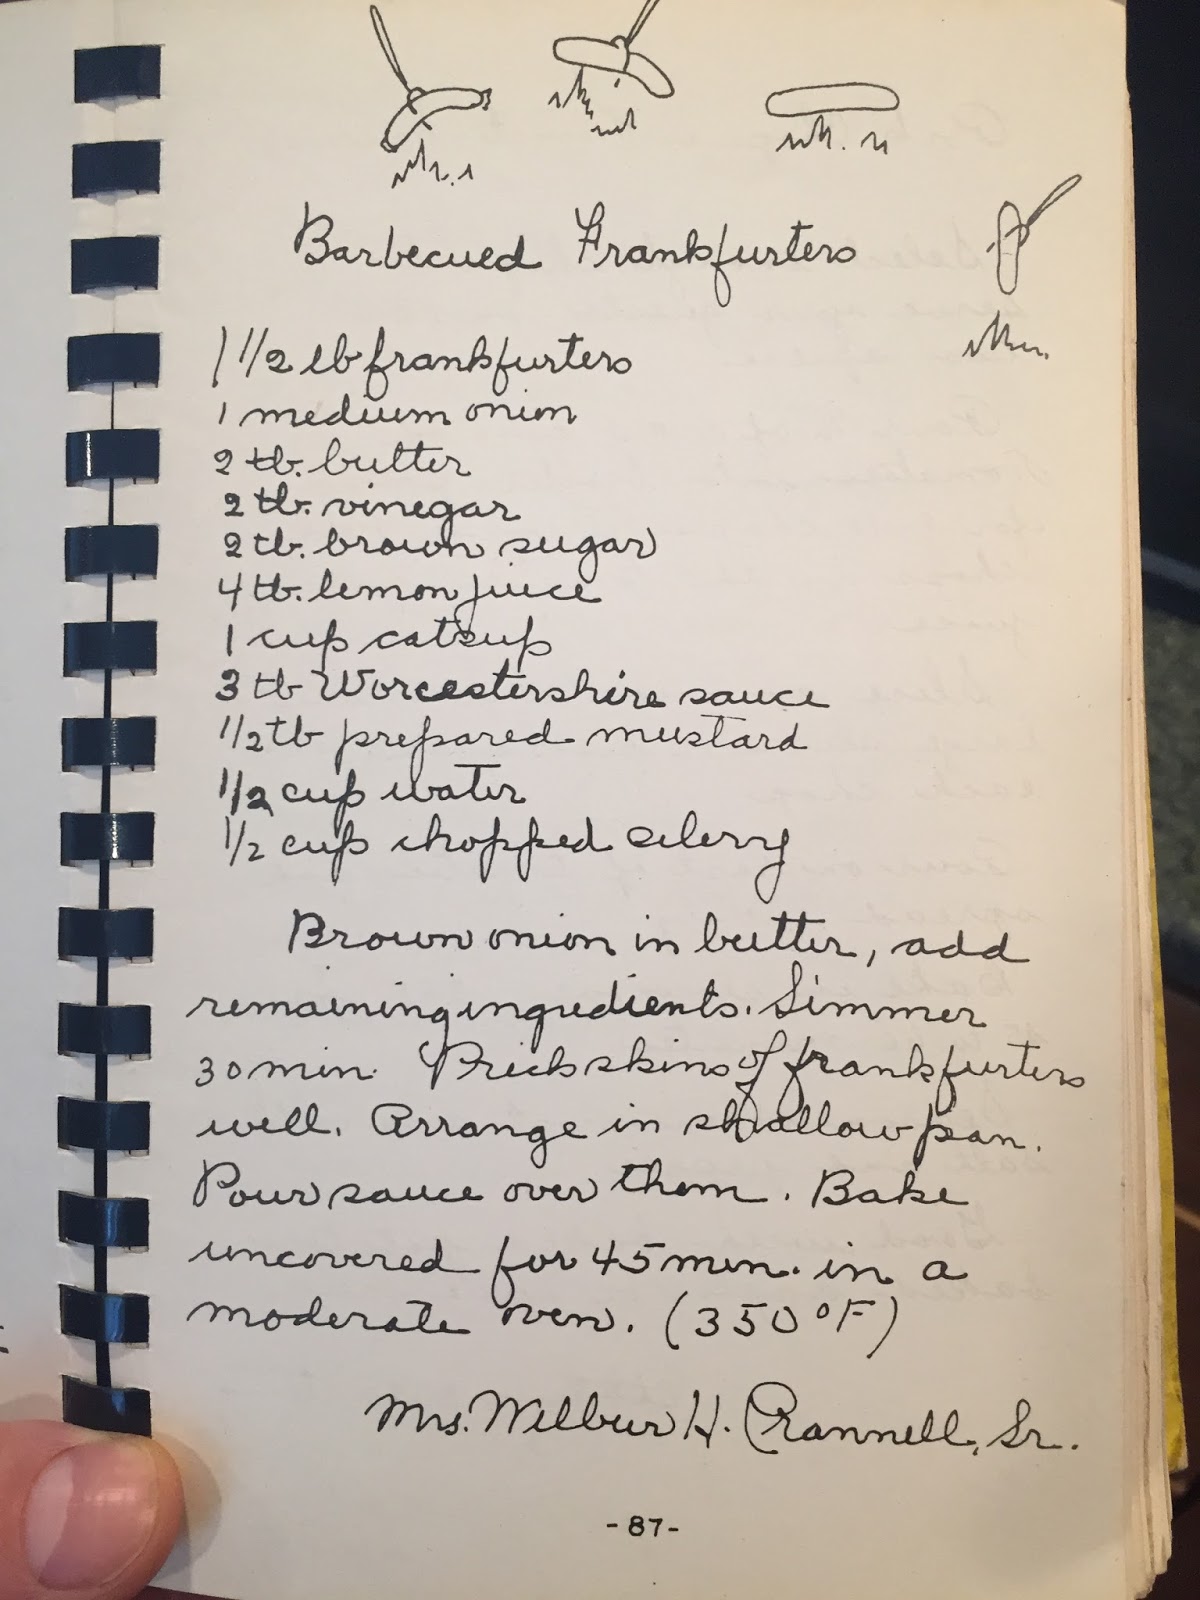 Barbecued Frankfurters
1 1/2 lb frankfurters
1 medium onion
2 tb. butter
2 tb. vinegar
2 tb. brown sugar
4 tb. lemon juice
1 cup catsup
3 tb Worcestershire sauce
1/2 tb prepared mustard
1/2 cup water
1/2 cup chopped celery
Brown onion in butter, add
remaining ingredients. Simmer
30 min. Prick skins of frankfurters
well. Arrange in shallow pan.
Pour sauce over them. Bake
uncovered for 45 min. in a
moderate oven. (350°F)
Mrs. Wilbur H. Crannell, Sr.
-87-